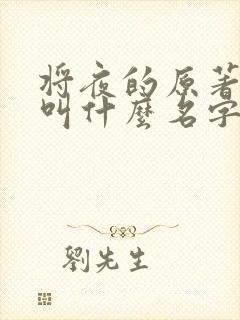 將夜的原著
叫什麼名字
劉先生